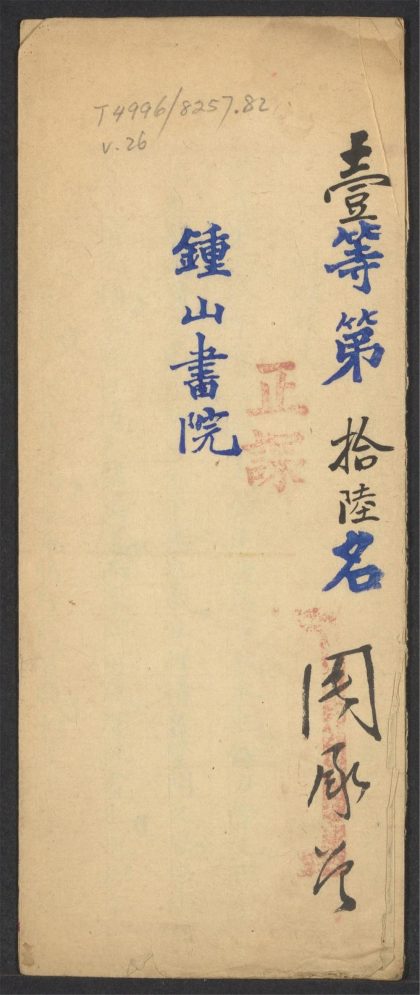 T4996/8257.82
v.26
壹等第拾陸名 周承
正課
鍾山書院